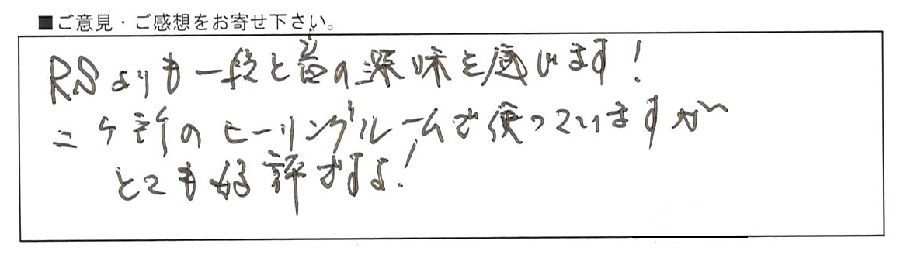 ■ご意見・ご感想をお寄せ下さい。
RSよりも一段と音の深味を感じます!
二ケ所のヒーリングルームで使っていますが
とても好評ですよ!